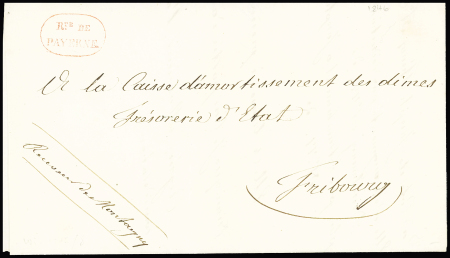 RPS DE
PAYERNE
A la Caisse d'amortissement des dîmes
Trésorerie d'Etat
Fribourg
Receveur de Montagny